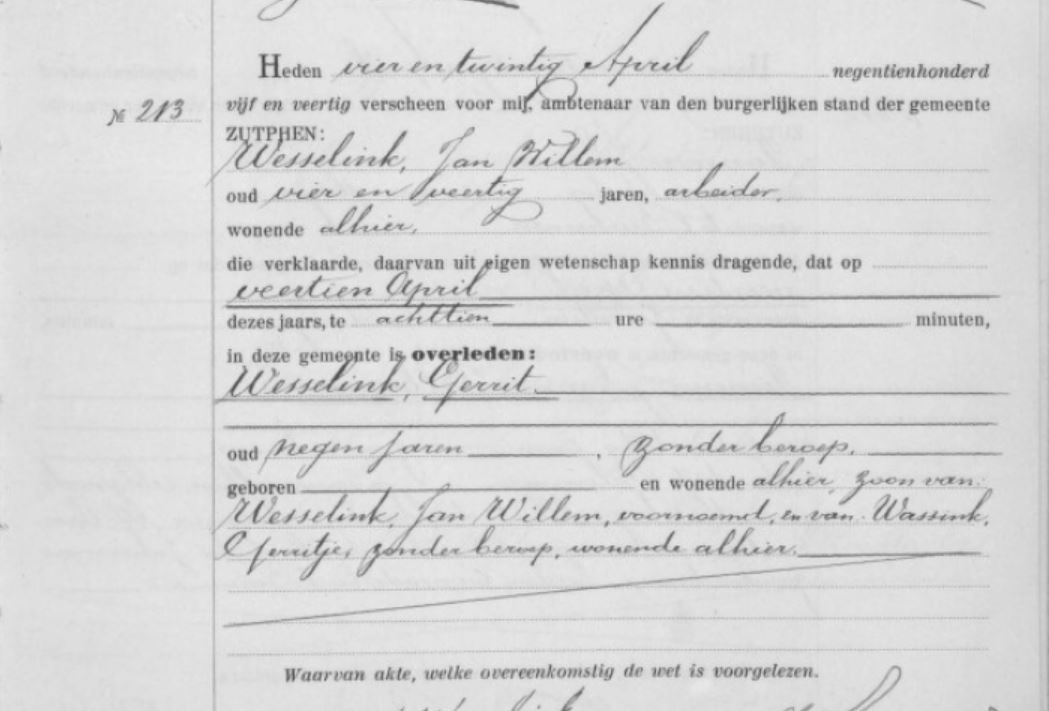 Heden vier en twintig April negentienhonderd
№ 213
vijf en veertig verscheen voor mij, ambtenaar van den burgerlijken stand der gemeente
ZUTPHEN:
Wesselink, Jan Willem
oud vier en veertig jaren, arbeider,
wonende alhier,
die verklaarde, daarvan uit eigen wetenschap kennis dragende, dat op
veertien April
dezes jaars, te achttien ure minuten,
in deze gemeente is overleden:
Wesselink, Gerrit.
oud negen jaren, zonder beroep,
geboren en wonende alhier, zoon van:
Wesselink, Jan Willem, voornoemd, en van Wassink,
Gerritje, zonder beroep, wonende alhier.
Waarvan akte, welke overeenkomstig de wet is voorgelezen.